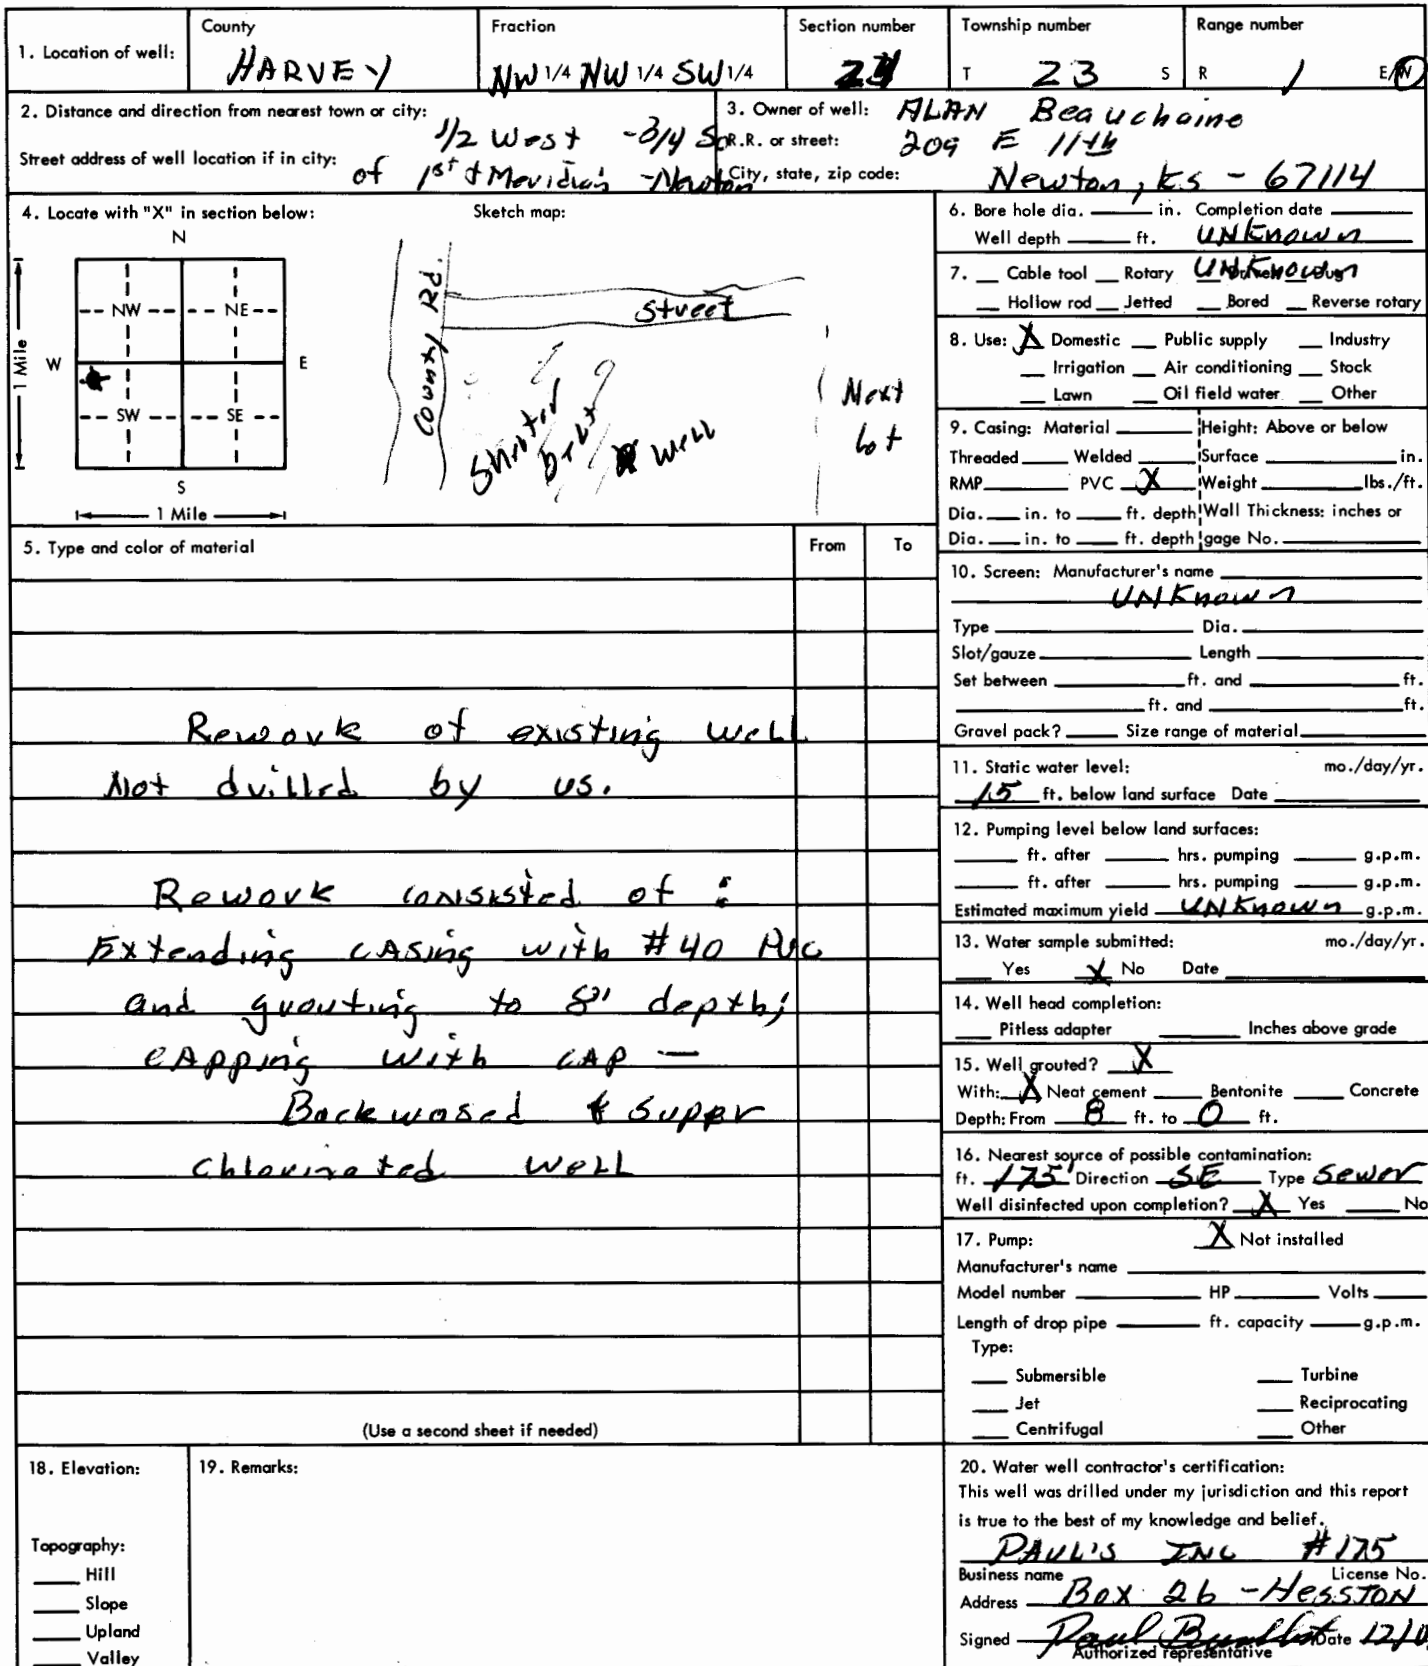 1. Location of well:
County
HARVEY
Fraction
NW 1/4 NW 1/4 SW 1/4
Section number
Township number
T 23 S
Range number
R 1 E/W
2. Distance and direction from nearest town or city:
1/2 West - 3/4 So
Street address of well location if in city:
of 1st & Meridian - Newton
3. Owner of well: ALAN Beauchaine
R.R. or street: 209 E 11th
City, state, zip code: Newton, ks - 67114
4. Locate with "X" in section below:
N
NW NE
W E
SW SE
S
1 Mile
1 Mile
Sketch map:
County Rd.
Street
Shelter
belt
X well
Next
lot
5. Type and color of material From To
Rework of existing well
Not drilled by us.
Rework consisted of :
Extending cAsing with #40 PVC
and grouting to 8' depth;
cApping with cAp —
Backwased & super
chlorinated well
(Use a second sheet if needed)
6. Bore hole dia. in. Completion date
Well depth ft. UNKnown
7. Cable tool Rotary UNKnown
Hollow rod Jetted Bored Reverse rotary
8. Use: X Domestic Public supply Industry
Irrigation Air conditioning Stock
Lawn Oil field water Other
9. Casing: Material Height: Above or below
Threaded Welded Surface in.
RMP PVC X Weight lbs./ft.
Dia. in. to ft. depth Wall Thickness: inches or
Dia. in. to ft. depth gage No.
10. Screen: Manufacturer's name
UNKnown
Type Dia.
Slot/gauze Length
Set between ft. and ft.
ft. and ft.
Gravel pack? Size range of material
11. Static water level: mo./day/yr.
15 ft. below land surface Date
12. Pumping level below land surfaces:
ft. after hrs. pumping g.p.m.
ft. after hrs. pumping g.p.m.
Estimated maximum yield UNKnown g.p.m.
13. Water sample submitted: mo./day/yr.
Yes X No Date
14. Well head completion:
Pitless adapter Inches above grade
15. Well grouted? X
With: X Neat cement Bentonite Concrete
Depth: From 8 ft. to 0 ft.
16. Nearest source of possible contamination:
ft. 175' Direction SE Type Sewer
Well disinfected upon completion? X Yes No
17. Pump: X Not installed
Manufacturer's name
Model number HP Volts
Length of drop pipe ft. capacity g.p.m.
Type:
Submersible Turbine
Jet Reciprocating
Centrifugal Other
18. Elevation:
Topography:
Hill
Slope
Upland
Valley
19. Remarks:
20. Water well contractor's certification:
This well was drilled under my jurisdiction and this report
is true to the best of my knowledge and belief.
PAUL'S INC #175
Business name License No.
Address Box 26 - HESSTON
Signed Paul Date
Authorized representative